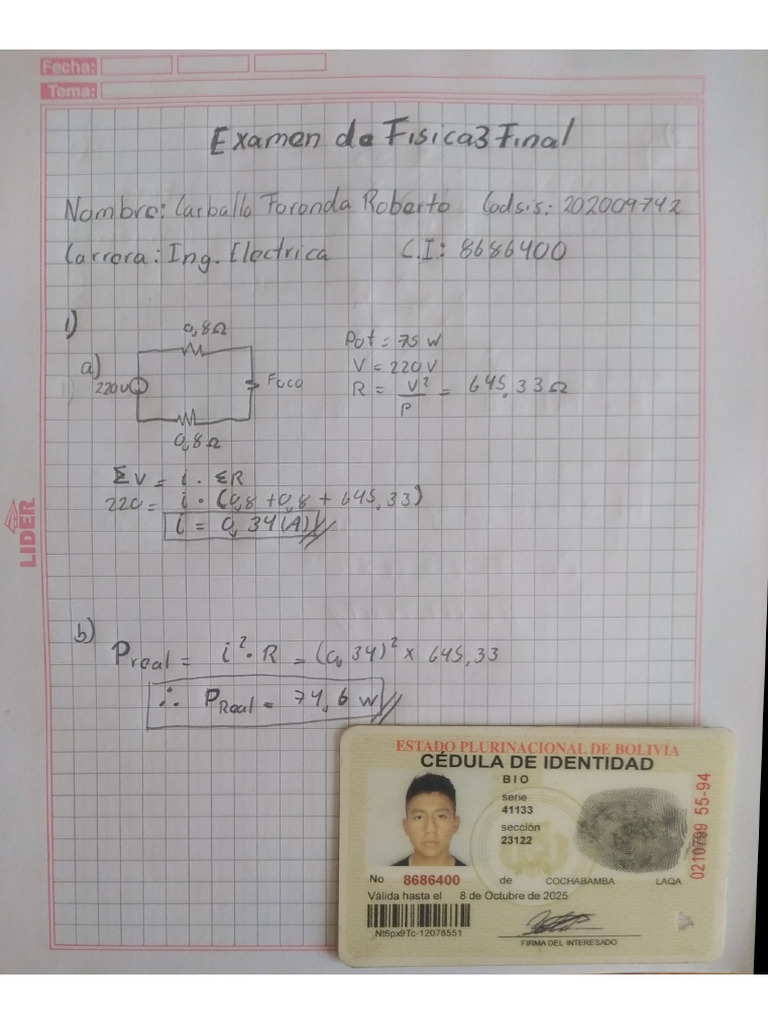 Fecha:
Tema:
Examen de Fisica3 Final
Nombre: Carballo Foronda Roberto Codsis: 202009742
Carrera: Ing. Electrica C.I: 8686400
1)
a)
0,8Ω
220V
Foco
0,8Ω
Pot = 75 W
V = 220 V
R = V²/P = 645,33Ω
ΣV = i · ΣR
220 = i · (0,8 + 0,8 + 645,33)
i = 0,34 (A)
LIDER
b)
Preal = i² · R = (0,34)² x 645,33
∴ PReal = 74,6 W
ESTADO PLURINACIONAL DE BOLIVIA
CÉDULA DE IDENTIDAD
BIO
serie
41133
sección
23122
No 8686400 de COCHABAMBA LAQA
Válida hasta el 8 de Octubre de 2025
Nt6px9Tc-12078551
FIRMA DEL INTERESADO
0210799 55-94